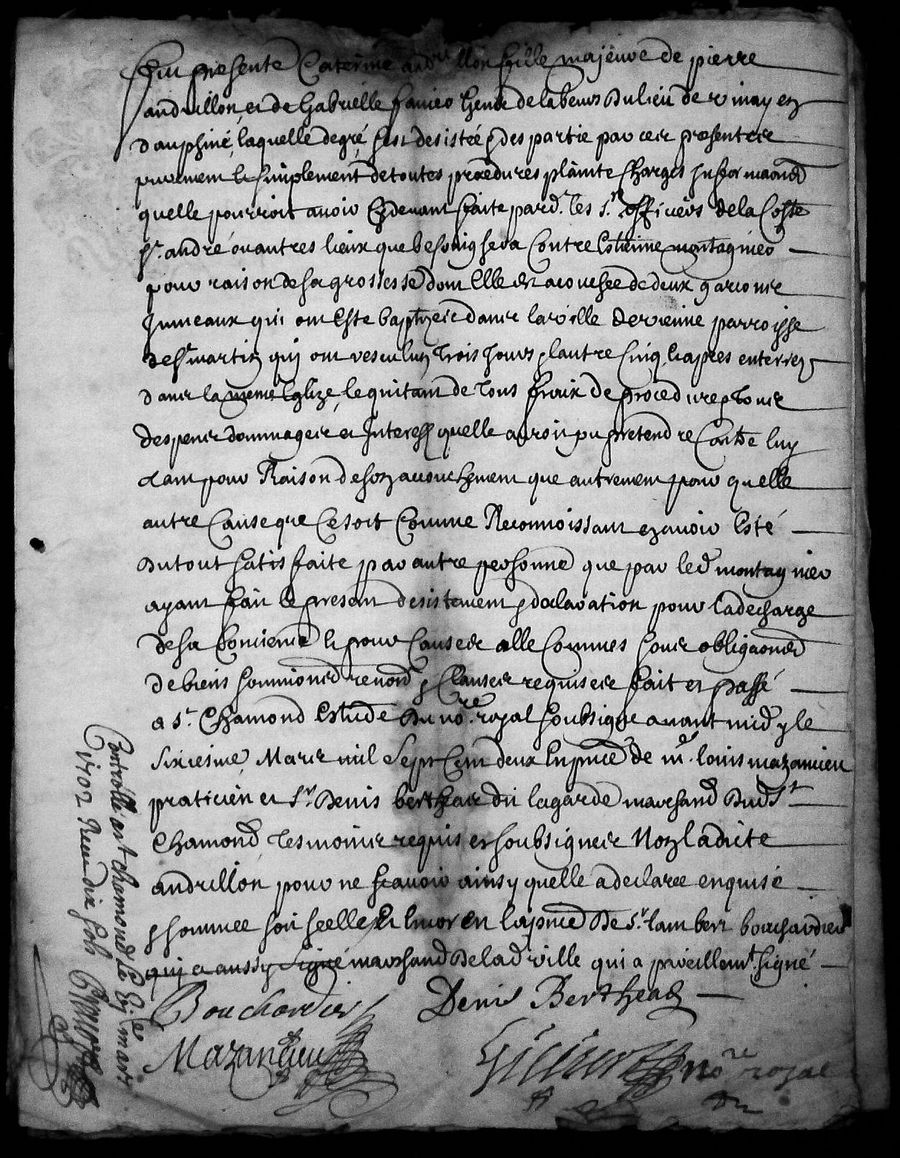 Fut presente Caterine andrillon fille majeure de pierre
andrillon et de Gabrielle du lieu de vinay en
dauphiné, laquelle de gré s'est desistée & despartie par ces presentes
purement & simplement de toutes procedures plainte charges Informaaons
quelle pourroit avoir cy devant faite pard.t les S.rs officiers de la Coste
S.t andré ou autres lieux que besoing sera Contre Estienne montagnieo
pour raison de sa grossesse dont Elle est acouchée de deux garcons
Jumeaux qui ont Esté baptizés dans la ville de vienne parroisse
de S.t martin qui ont vescu lun Trois Jours & lautre Cinq & apres enterrez
dans la mesme Eglize, le quitant de tous fraix de procedures Tous
despens dommages et Interestz quelle auroit pu pretendre Contre luy
tant pour Raison de son acouchement que autrement pour quelle
autre Cause que Ce soit Comme Reconnoissant en avoir Esté
du tout satisfaite par autre personne que par led. montagnieo
ayant fait le present desistement & declaration pour la decharge
de sa Concience & pour Causes a elle Connues sous obligaons
de biens soumissions renonc. & Clauses requises fait et passé
a S.t Chamond Estude du no.re royal soubsigné avant midy le
sixiesme Mars mil Sept Cent deux En pnce de m.e louis mazancieu
praticien et S.r Denis bertheas du lagarde marchand dud. S.t
Chamond Tesmoins requis et soubsignes Non ladicte
andrillon pour ne scavoir ainsy quelle a declaree enquise
& sommee soit Seellé & encor en la pnce de S.r lambert bouchardier
qui a aussy signé marchand de lad. ville qui a pareillem.t signé
Bouchardier Denis Bertheas
Mazancieu no.re royal
Controllé a st chamond le mars
1702 Receu dix sols